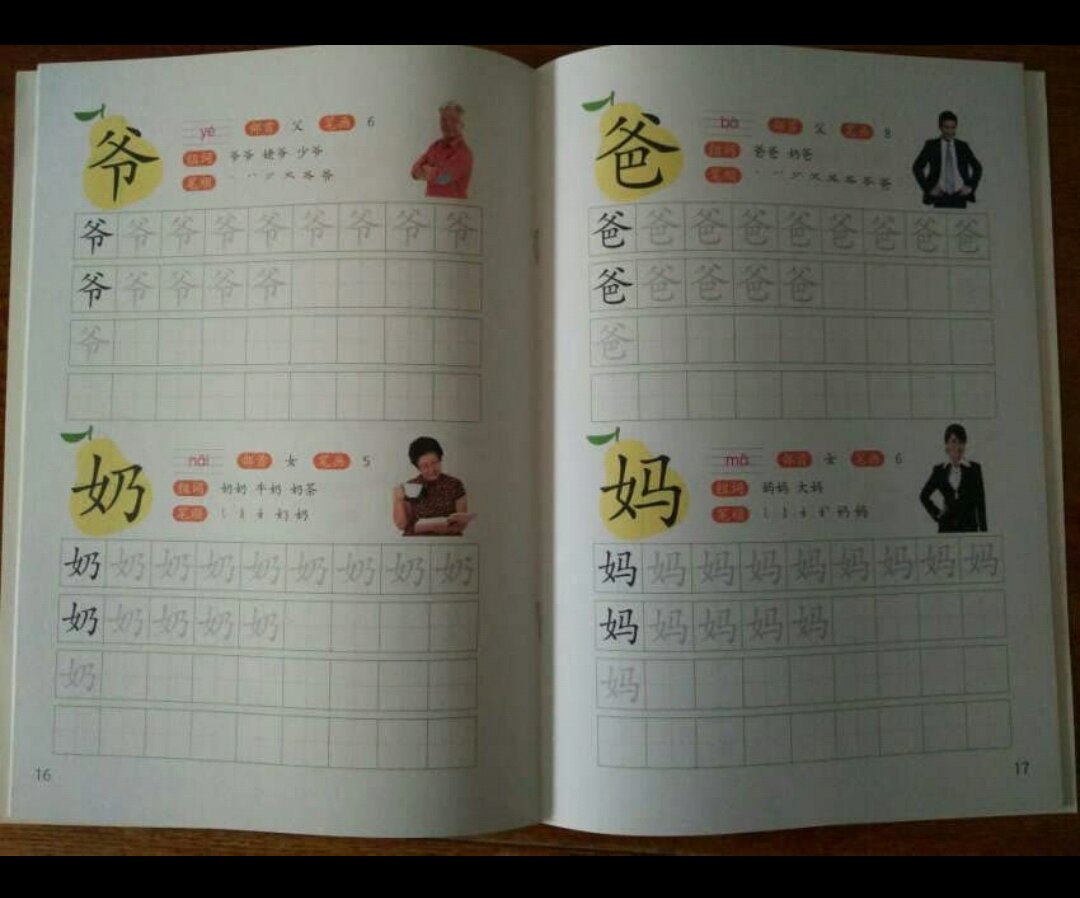 爷
yé 部首 父 笔画 6
组词 爷爷 姥爷 少爷
笔顺
爷 爷 爷 爷 爷 爷 爷 爷 爷
爷 爷 爷 爷 爷
爷
奶
nǎi 部首 女 笔画 5
组词 奶奶 牛奶 奶茶
笔顺
奶 奶 奶 奶 奶 奶 奶 奶 奶
奶 奶 奶 奶 奶
奶
16
爸
bà 部首 父 笔画 8
组词 爸爸 奶爸
笔顺
爸 爸 爸 爸 爸 爸 爸 爸 爸
爸 爸 爸 爸 爸
爸
妈
mā 部首 女 笔画 6
组词 妈妈 大妈
笔顺
妈 妈 妈 妈 妈 妈 妈 妈 妈
妈 妈 妈 妈 妈
妈
17